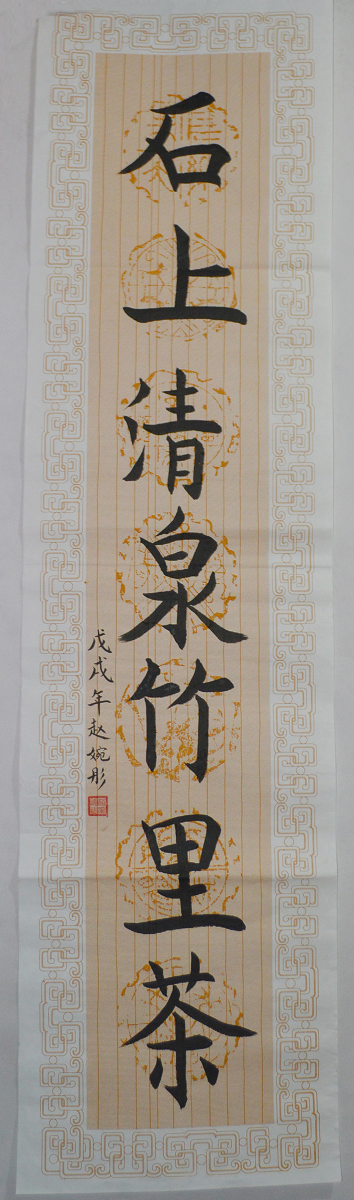 石上清泉竹里茶
戊戌年赵婉彤